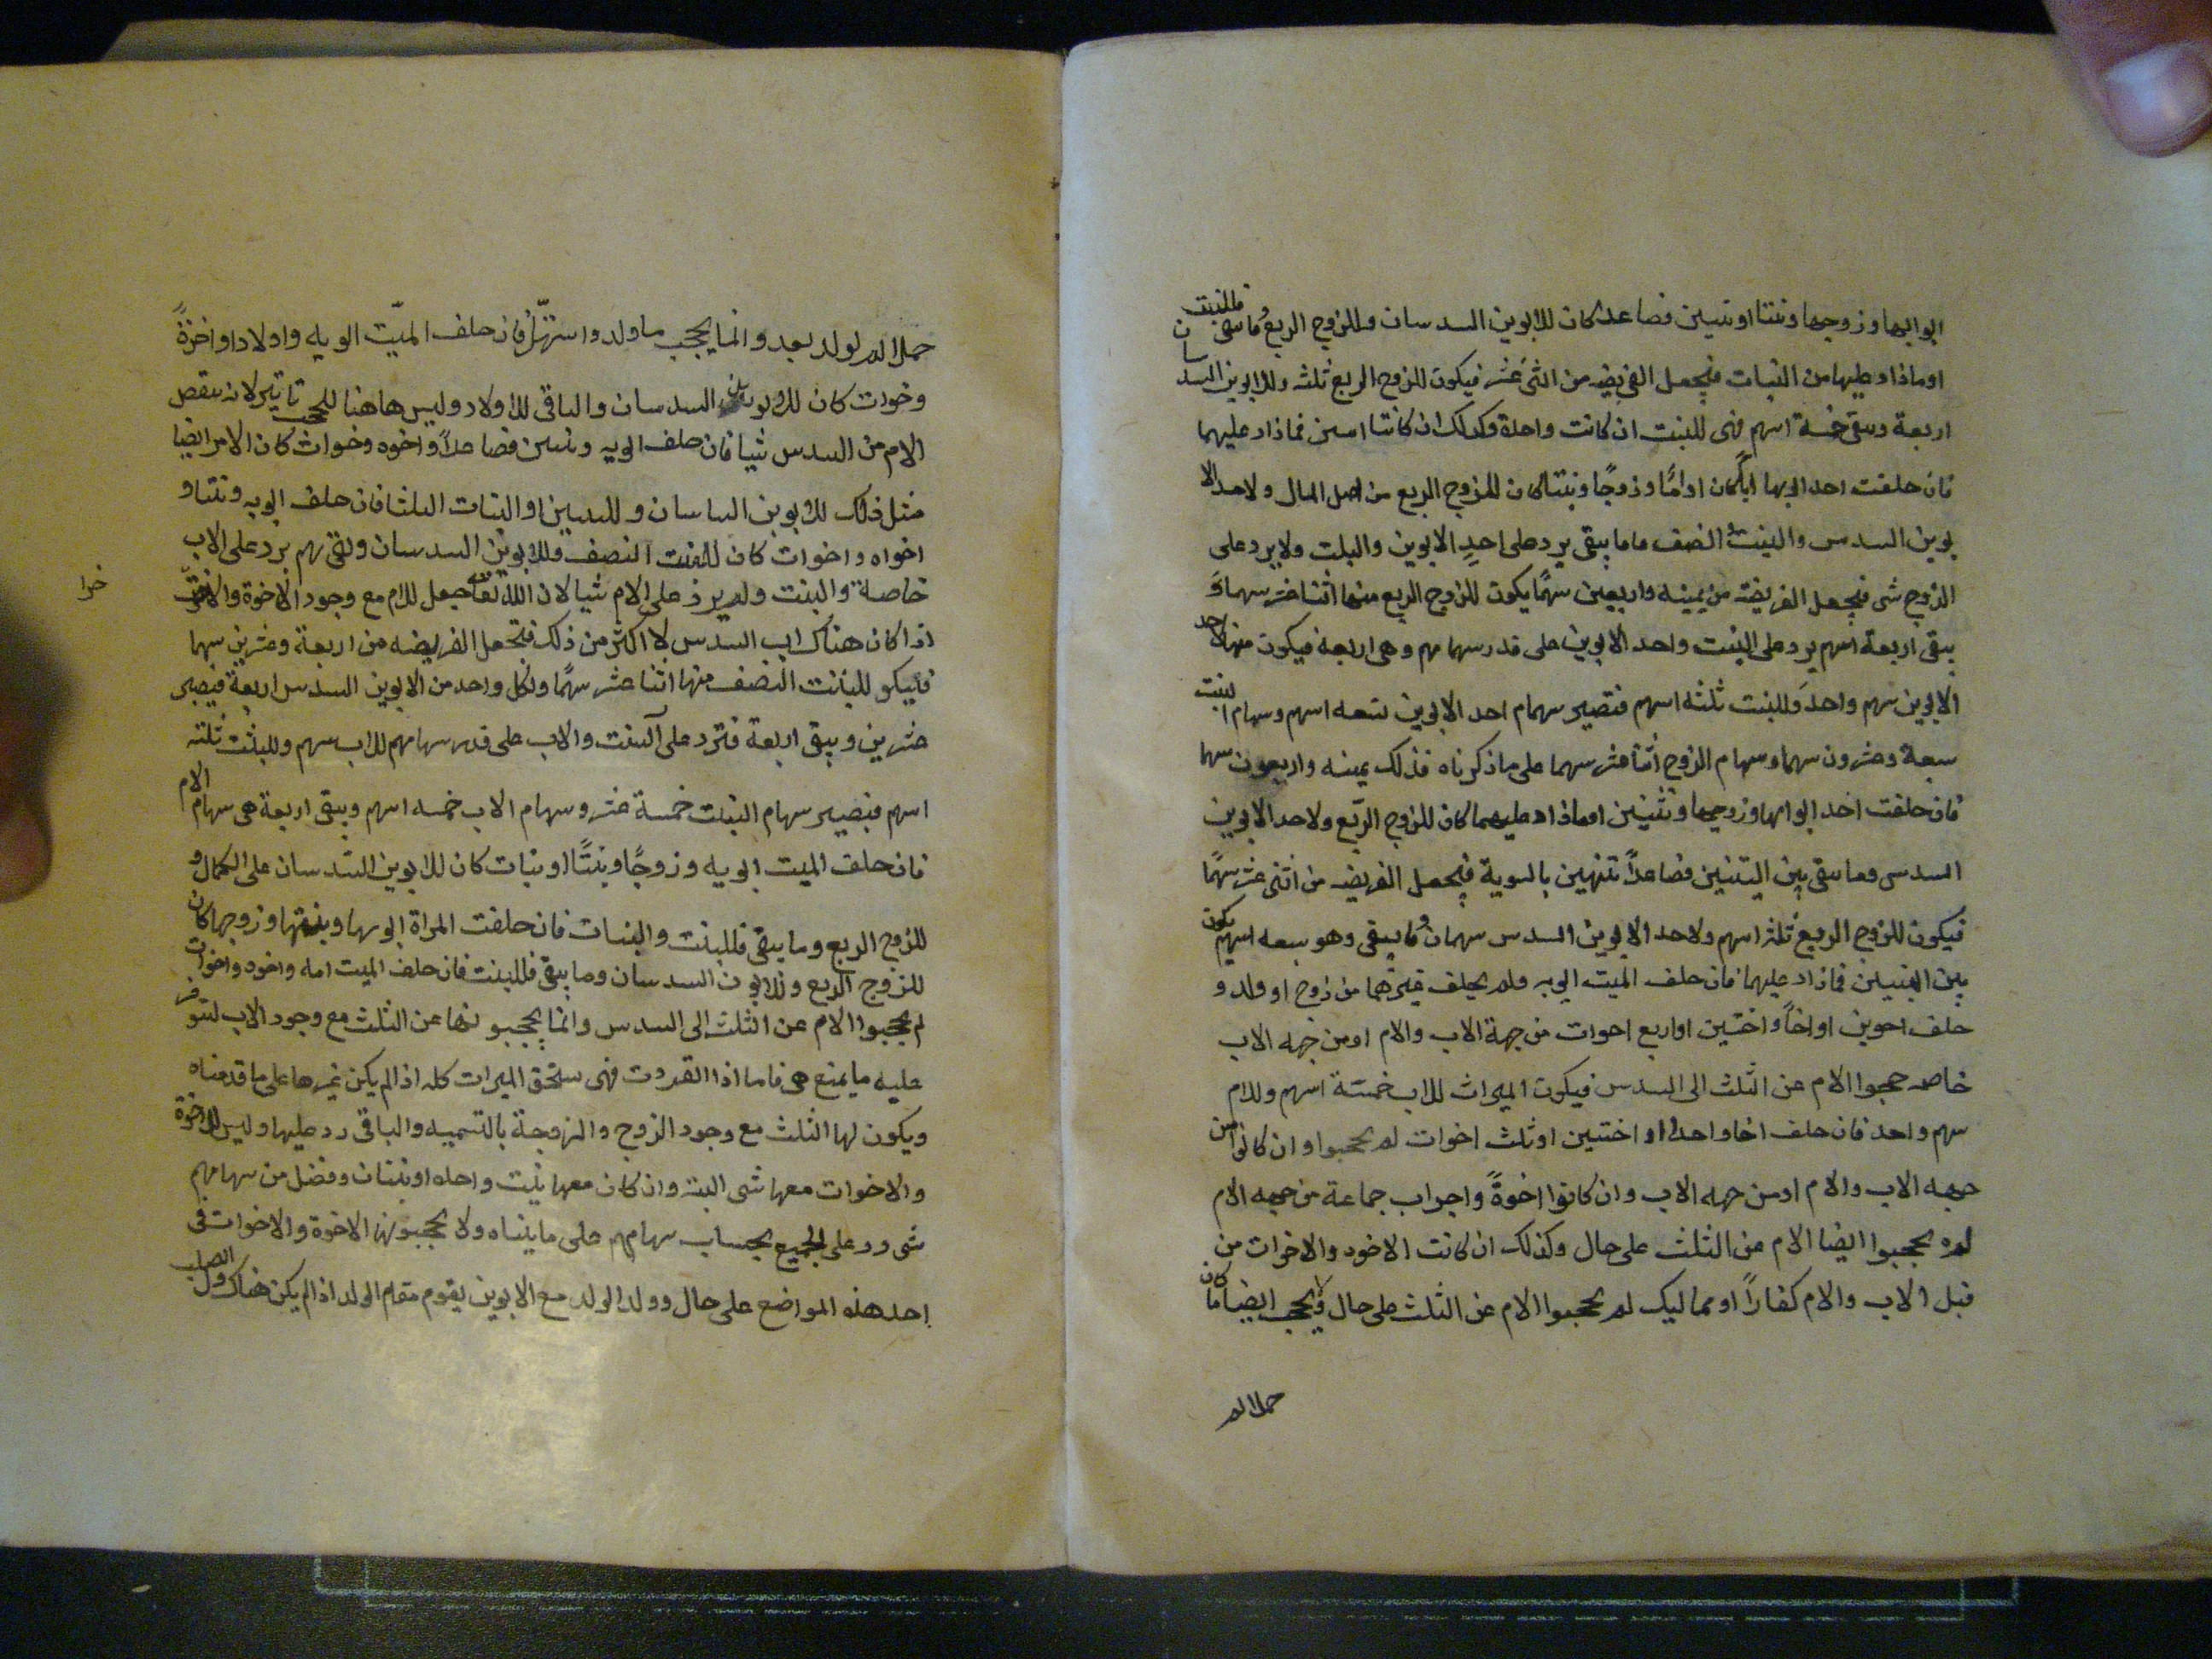 ابواها وزوجها وبنتا او بنتين فصاعدا كان للابوين السدسان وللزوج الربع وما بقى فللبنت
او ما زاد عليها من البنات فتجعل الفريضه من اثنى عشر فيكون للزوج الربع ثلثه وللابوين السدسان
اربعة ويبقى خمسة اسهم فهى للبنت ان كانت واحدة وكذلك ان كانتا اثنين فما زاد عليهما
فان خلفت احد ابويها ابا كان او امًّا وزوجًا وبنتا كان للزوج الربع من اصل المال ولاحد الا
بوين السدس وللبنت النصف وما يبقى يرد على احدِ الابوين والبنت ولا يرد على
الزوج شى فتجعل الفريضة من ثمنيه واربعين سهمًا يكون للزوج الربع منها اثنا عشر سهما وَ
يبقى اربعة اسهم يرد على البنت واحد الابوين على قدر سهامهم وهى اربعة فيكون منها لاحد
الابوين سهم واحد وَللبنت ثلثه اسهم فتصير سهام احد الابوين تسعه اسهم وسهام البنت
سبعة وعشرون سهما وسهام الزوج اثنا عشر سهما على ما ذكرناه فذلك ثمنيه واربعون سهما
فان خلفت احد ابوايها وزوجها وبنتين او ما زاد عليهما كان للزوج الرّبع ولاحد الابوين
السدس وما يبقى بين البنتين فصاعداً بينهن بالسوية فتجعل الفريضه من اثنى عشر سهمًا
فيكون للزوج الربع ثلثه اسهم ولاحد الابوين السدس سهمان وما يبقى وهو سبعه اسهم يكون
بين البنتين فما زاد عليهما فان خلف الميت ابويه ولم يخلف غيرهما من زوج او ولد و
خلف اخوين او اخاً واختين او اربع اخوات من جهة الاب والام او من جهه الاب
خاصه حجبوا الام عن الثلث الى السدس فيكون الميراث للاب خمسة اسهم وللام
سهم واحد فان خلف اخا واحدا او اختين او ثلث اخوات لم يحجبوا وان كانوا من
جهه الاب والام او من جهه الاب وان كانوا اخوةً واخوات جماعة من جهه الام
لم يحجبوا ايضا الام من الثلث على حال وكذلك ان كانت الاخوه والاخوات من
قبل الاب والام كفاراً او مماليك لم يحجبوا الام عن الثلث على حال ولا يحجب ايضا ما كان
حملا لم
حملا لم يولد بعد وانما يحجب ما ولد واستهلّ فان خلف الميّت ابويه واولادا واخوةً
وخوات كان للابوين السدسان والباقى للاولاد وليس هاهنا للحجب تاثير لانه ينقص
الام من السدس شيا فان خلف ابويه وبنتين فصاعداً واخوه وخوات كان الامر ايضا
مثل ذلك للابوين السدسان وللبنتين او البنات الثلثا فان خلف ابويه وبنتا و
اخواه واخوات كان للبنت النصف وللابوين السدسان وبقى سهم يرد على الاب
خاصة والبنت ولم يرد على الام شيا لان الله تعا جعل للام مع وجود الاخوة والاخوات
خوا
اذا كان هناك اب السدس لا اكثر من ذلك فتجعل الفريضه من اربعة وعشرين سهما
فيكو للبنت النصف منها اثنا عشر سهمًا ولكل واحد من الابوين السدس اربعة فيصير
عشرين ويبقى اربعة فترد على البنت والاب على قدر سهامهم للاب سهم وللبنت ثلثه
اسهم فتصير سهام البنت خمسة عشر وسهام الاب خمسه اسهم ويبقى اربعة هى سهام الام
فان خلف الميت ابويه وزوجًا وبنتًا او بنات كان للابوين السّدسان على الكمال و
للزوج الربع وما يبقى فللبنت والبنات فان خلفت المراة ابويها وبنتها وزوجها كان
للزوج الربع وللابوين السدسان وما يبقى فللبنت فان خلف الميت امه واخوه واخوات
لم يحجبوا الام عن الثلث الى السدس وانما يحجبونها عن الثلث مع وجود الاب لتوفر
عليه ما يمنع هى فاما اذا انفردت فهى تستحق الميراث كله اذا لم يكن غيرها على ما قدمناه
ويكون لها الثلث مع وجود الزوج والزوجة بالتسميه والباقى رد عليها وليس للاخوة
والاخوات معها شى البته وان كان معها بنت واحده او بنتان وفضل من سهامهم
شى رد على الجميع بحساب سهامهم على ما بيناه ولا يحجبونها الاخوة والاخوات فى
احد هذه المواضع على حال وولد الولد مع الابوين يقوم مقام الولد اذا لم يكن هناك ولد الصلب